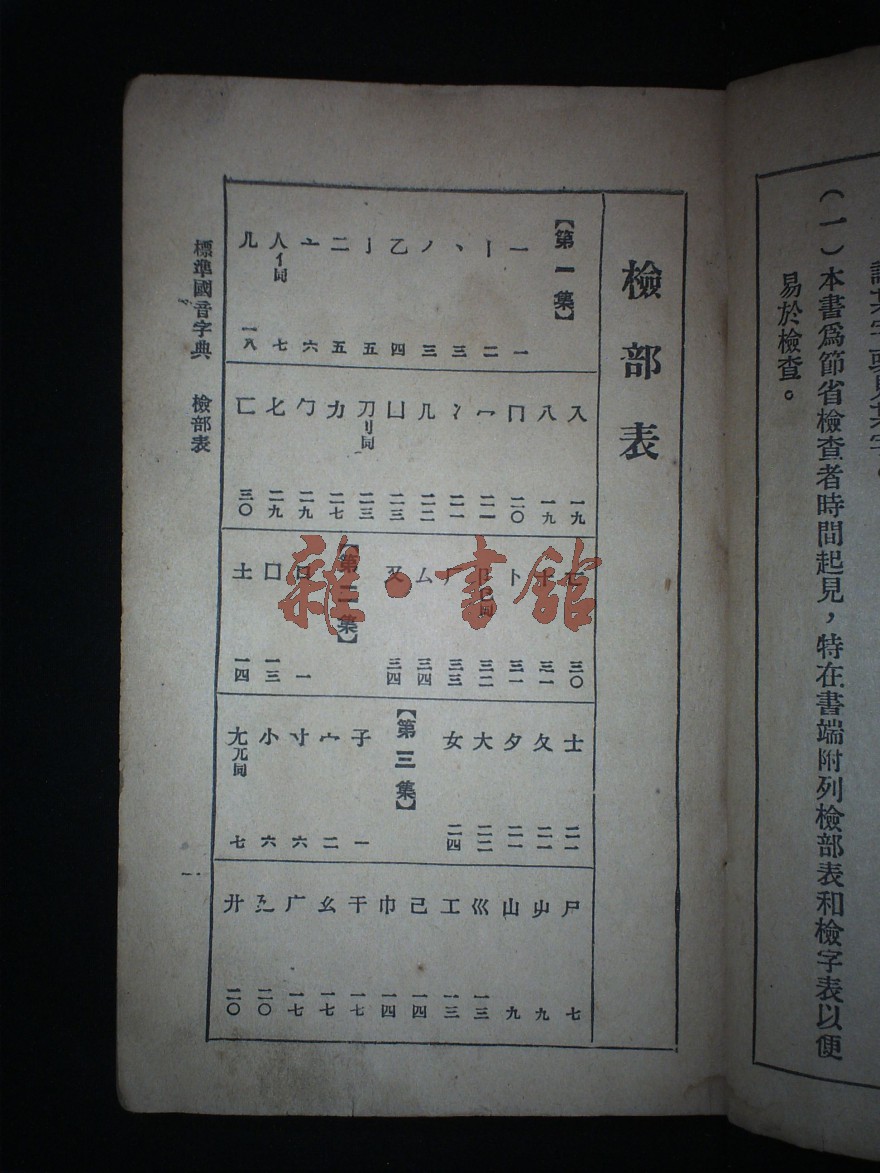 (一)本書爲節省檢查者時間起見，特在書端附列檢部表和檢字表以便
易於檢查。
檢部表
【第一集】
一 一
丨 二
丶 三
丿 三
乙 四
亅 五
二 五
亠 六
人 亻同 七
儿 一八
入 一九
八 一九
冂 二〇
冖 二一
冫 二一
几 二二
凵 二三
刀 刂同 二三
力 二七
勹 二九
匕 二九
匚 三〇
匸 三〇
十 三一
卜 三一
卩 㔾同 三二
厂 三三
厶 三四
又 三四
【第二集】
口 一
囗 一三
土 一四
士 二一
夂 二一
夕 二一
大 二二
女 二四
【第三集】
子 一
宀 二
寸 六
小 六
尢 兀同 七
尸 七
屮 九
山 九
巛 一三
工 一三
己 一四
巾 一四
干 一七
幺 一七
广 一七
廴 二〇
廾 二〇
標準國音字典 檢部表
一
雜·書館